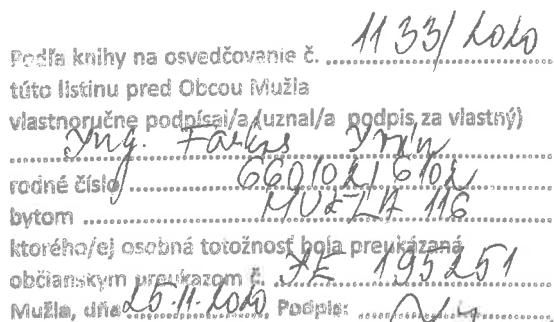 Podľa knihy na osvedčovanie č. 1133/2020
túto listinu pred Obcou Mužla
vlastnoručne podpísal/a (uznal/a podpis za vlastný)
Ing. Farkas
rodné číslo 660102/6102
bytom MUŽLA 116
ktorého/ej osobná totožnosť bola preukázaná
občianskym preukazom č. 195251
Mužla, dňa 25.11.2020 Podpis: